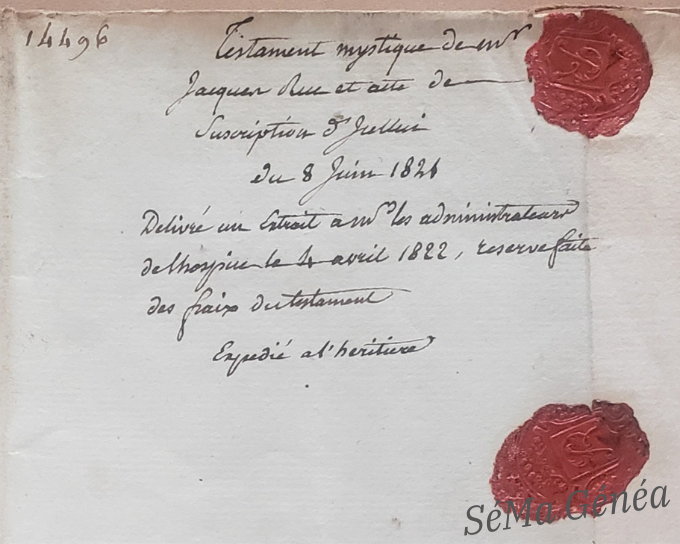 14496
Testament mystique de mr
Jacques Rue et acte de
Suscription d'Icellui
du 8 Juin 1821
Delivré un Extrait a mrs les administrateurs
de lhospice le 4 avril 1822, reserve faite
des fraix du testament
Expedié a l'heritiere
SéMa Généa